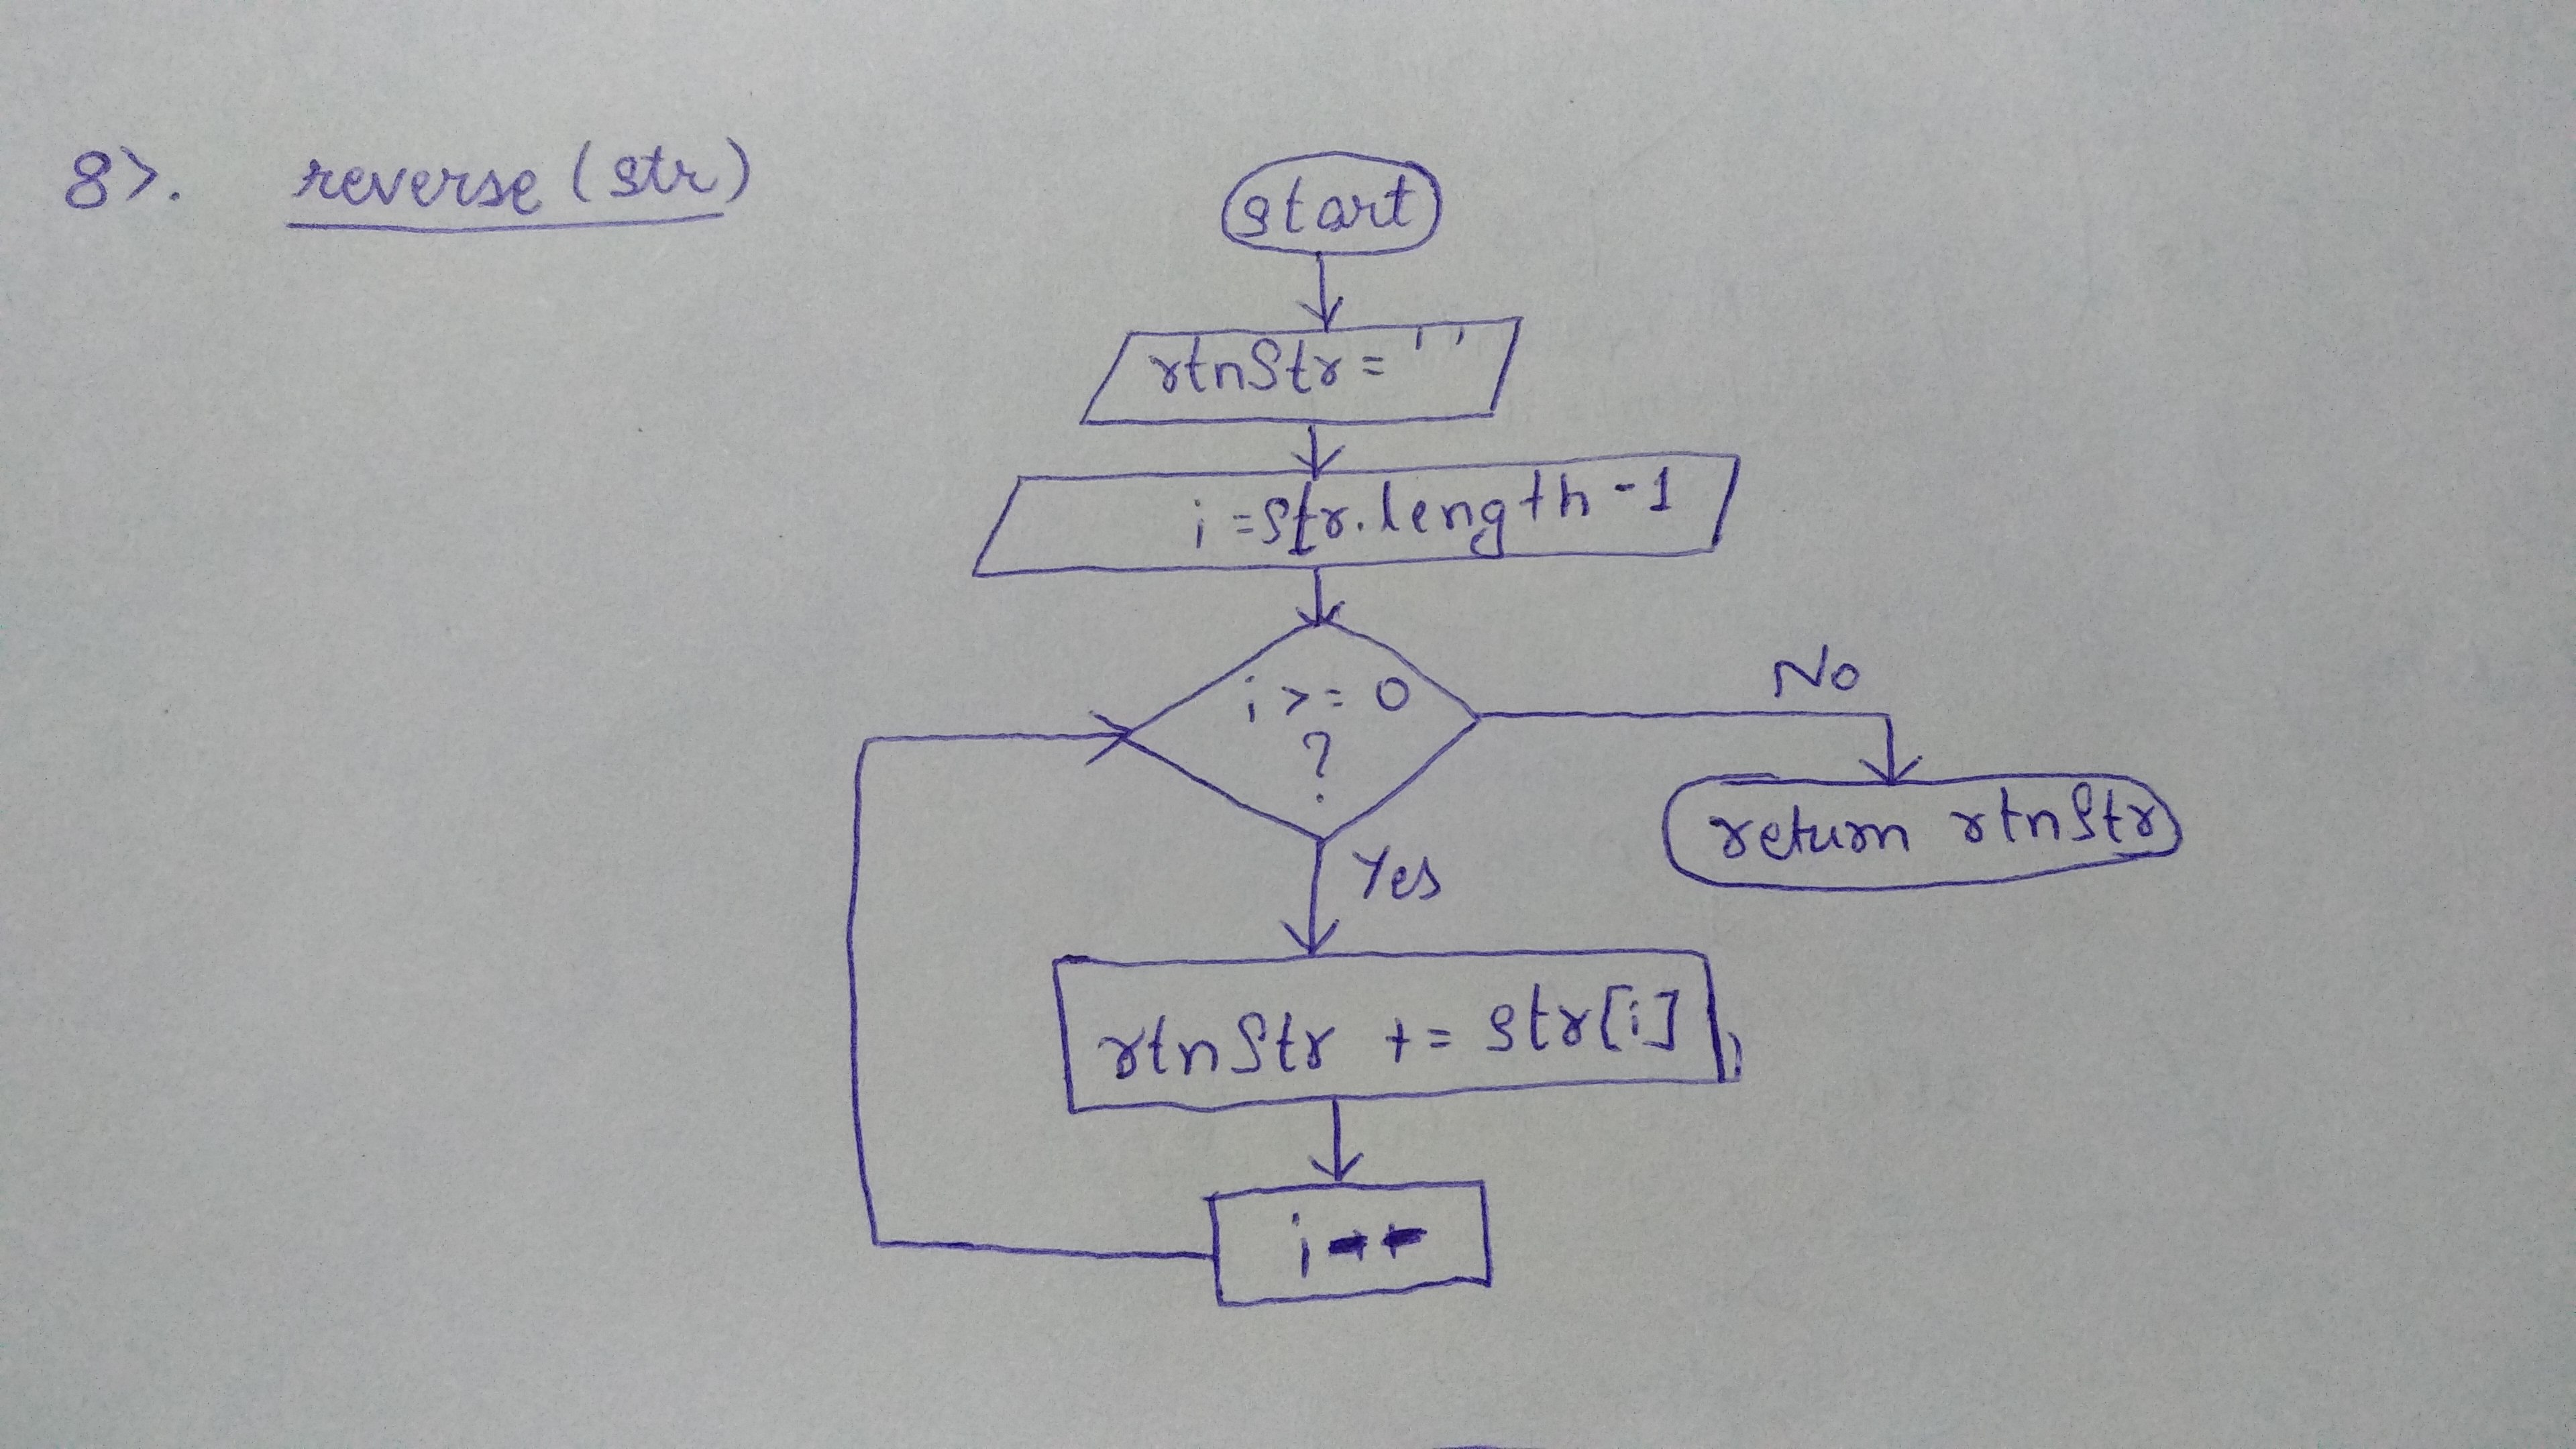 8>. reverse (str)
start
rtnStr = ' '
i = str.length - 1
i >= 0
?
No
return rtnStr
Yes
rtnStr += str[i]
i--